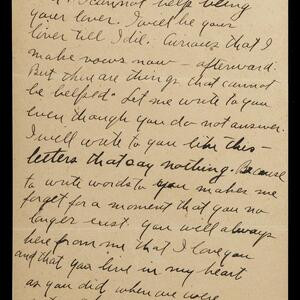 I cannot help being
your lover. I will be your
lover till I die. Curious that I
make vows now — afterward.
But there are things that cannot
be helped. Let me write to you
even though you do not answer.
I will write to you like this —
letters that say nothing. Because
to write words to you makes me
forget for a moment that you no
longer exist. You will always
hear from me that I love you
and that you live in my heart
as you did when we were